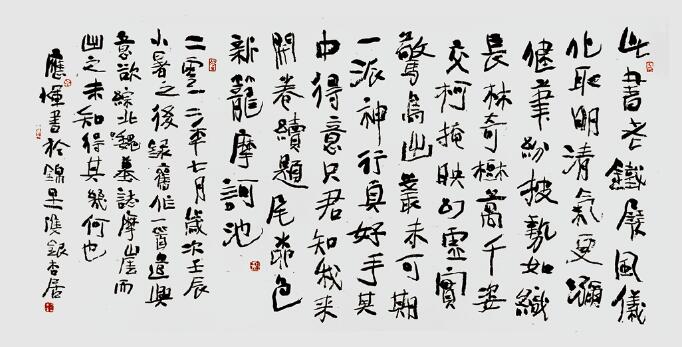 此書老鐵展風儀
化取明清氣更瀰
健筆紛披勢如織
長林奇樹萬千姿
交柯掩映幻虛實
驚鳥出叢未可期
一派神行真好手其
中得意只君知我來
開卷續題尾色
新籠摩訶池
二零一二年七月歲次壬辰
小暑之後錄舊作一首遣興
意欲綜北魏墓誌摩崖而
出之未知得其幾何也
應書於錦里雙銀杏居